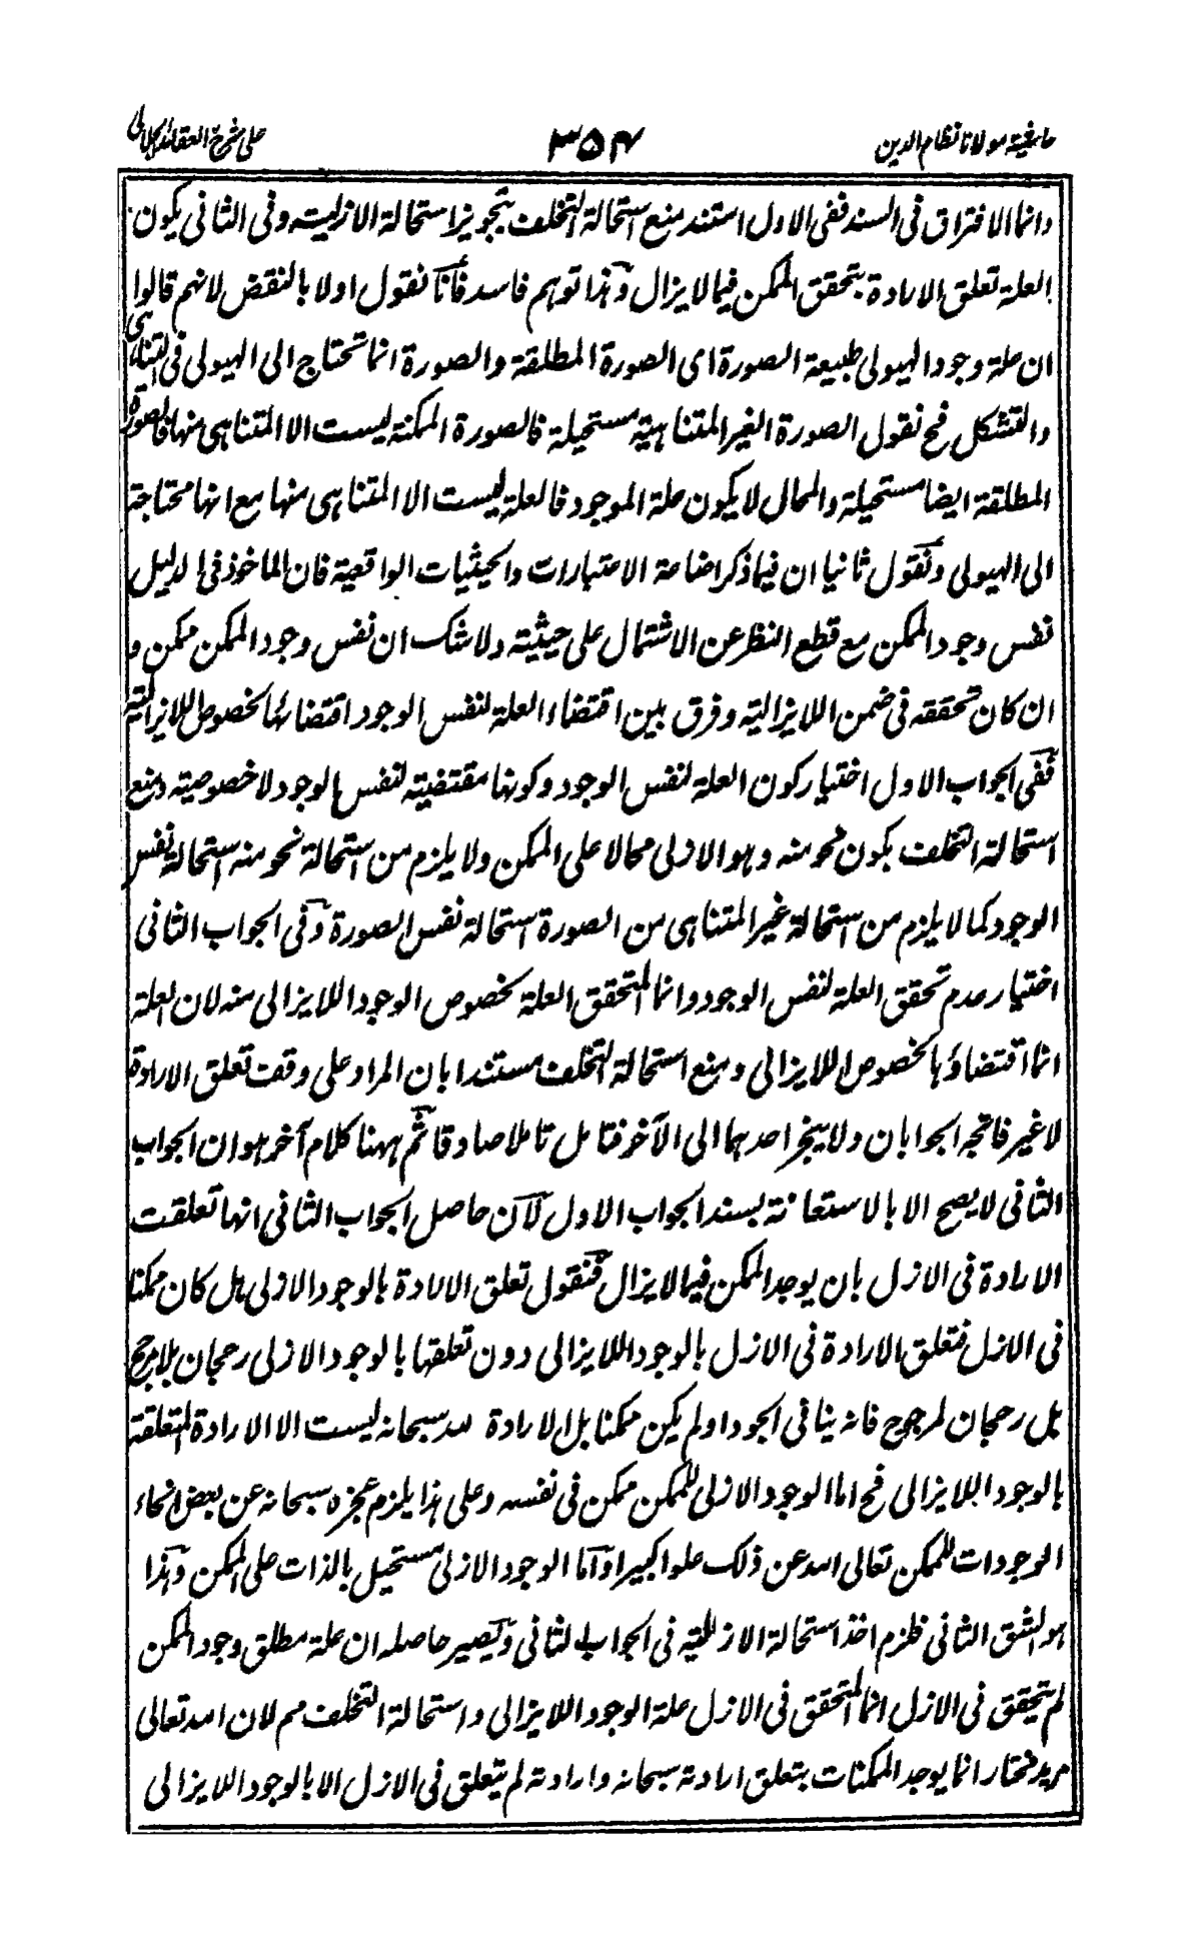 حاشية مولانا نظام الدين
٣٥٤
على شرح العقائد الجلالى
وانما الافتراق فى السند ففى الاول استند منع استحالة التخلف بتجويز استحالة الازلية وفى الثانى يكون
العلة تعلق الارادة بتحقق الممكن فيما لا يزال وهذا توهم فاسد فانا نقول اولا بالنقض لانهم قالوا
ان علة وجود الهيولى طبيعة الصورة اى الصورة المطلقة والصورة انما تحتاج الى الهيولى فى التناهى
والتشكل فح نقول الصورة الغير المتناهية مستحيلة فالصورة الممكنة ليست الا المتناهى منها فالصورة
المطلقة ايضا مستحيلة والمحال لا يكون علة الموجود فالعلة ليست الا المتناهى منها مع انها محتاجة
الى الهيولى ونقول ثانيا ان فيما ذكر اضاعة الاعتبارات والحيثيات الواقعية فان الماخوذ فى الدليل
نفس وجود الممكن مع قطع النظر عن الاشتمال على حيثية ولا شك ان نفس وجود الممكن ممكن و
ان كان تحققه فى ضمن اللايزالية وفرق بين اقتضاء العلة لنفس الوجود اقتضائها لخصوص اللايزالية
ففى الجواب الاول اختيار كون العلة لنفس الوجود وكونها مقتضية لنفس الوجود لا خصوصية ومنع
استحالة التخلف بكون نحو منه وهو الازلى محالا على الممكن ولا يلزم من استحالة نحو منه استحالة نفس
الوجود كما لا يلزم من استحالة غير المتناهى من الصورة استحالة نفس الصورة وفى الجواب الثانى
اختيار عدم تحقق العلة لنفس الوجود وانما المتحقق العلة لخصوص الوجود اللايزالى منه لان العلة
انما اقتضاؤها لخصوص اللايزالى ومنع استحالة التخلف مستندا بان المراد على وقت تعلق الارادة
لا غير فاتجه الجوابان ولا ينجر احدهما الى الآخر فتامل تاملا صادقا ثم ههنا كلام آخر هو ان الجواب
الثانى لا يصح الا بالاستعانة بسند الجواب الاول لان حاصل الجواب الثانى انها تعلقت
الارادة فى الازل بان يوجد الممكن فيما لا يزال فنقول تعلق الارادة بالوجود الازلى هل كان ممكنا
فى الازل فتعلق الارادة فى الازل بالوجود اللايزالى دون تعلقها بالوجود الازلى رجحان بلا مرجح
بل رجحان لمرجوح فانه ينافى الجود او لم يكن ممكنا بل الارادة لله سبحانه ليست الا الارادة المتعلقة
بالوجود اللايزالى فح اما الوجود الازلى للممكن ممكن فى نفسه وعلى هذا يلزم عجزه سبحانه عن بعض انحاء
الوجودات للممكن تعالى الله عن ذلك علوا كبيرا واما الوجود الازلى مستحيل بالذات على الممكن وهذا
هو الشق الثانى فلزم اخذ استحالة الازلية فى الجواب الثانى ويصير حاصله ان علة مطلق وجود الممكن
لم يتحقق فى الازل انما المتحقق فى الازل علة الوجود اللايزالى واستحالة التخلف مم لان الله تعالى
مريد مختار انما يوجد الممكنات بتعلق ارادته سبحانه وارادته لم يتعلق فى الازل الا بالوجود اللايزالى